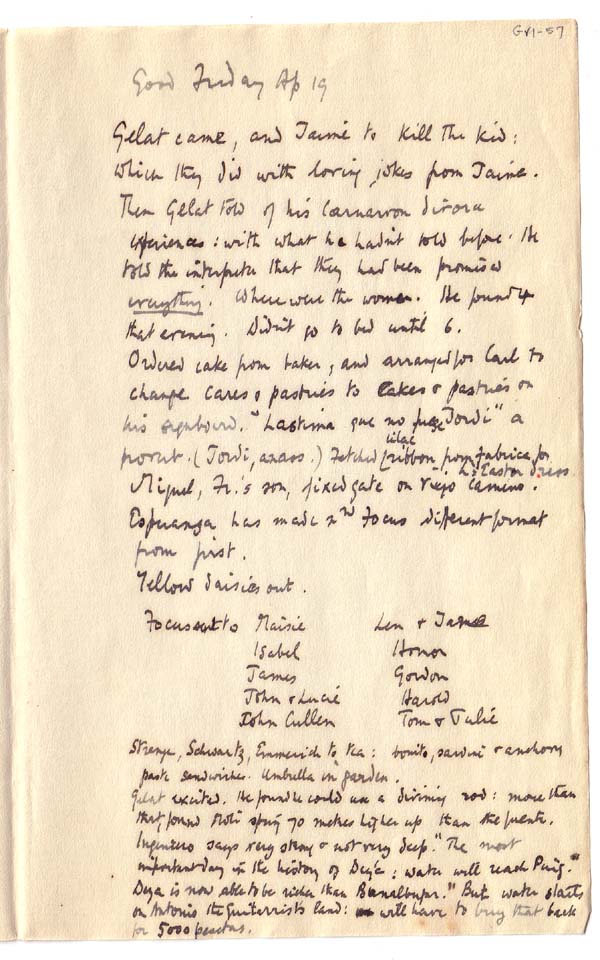 GVI-57
Good Friday Ap 19
Gelat came, and Jaime to kill the kid:
which they did with loving jokes from Jaime.
Then Gelat told of his Caernarvon
experiences: with what he hadn't told before. He
told the interpreter that they had been promised
everything. Where were the women. He found 4
that evening. Didn't go to bed until 6.
Ordered cake from baker, and arranged for Carl to
change Cares & pastries to Cakes & pastries on
his signboard. "Lastima que no Jordi" a
(Jordi, ) Fetched lilac ribbon from Fabrica for
her Easter dress
Miguel, Fr.'s son, fixed gate on viejo camino.
Esperanza has made 2nd Focus different format
from first.
Yellow daisies out.
Focus out to Maisie Len & Jane
Isabel Honor
James Gordon
John & Lucie Harold
John Cullen Tom & Julie
Strenge, Schwartz, Emmerich to tea: bonito, sardine & anchovy
paste sandwiches. Umbrella in garden.
Gelat excited. He found he could use a divining rod: more than
that found Moli spring 70 metres higher up than the fuente.
Ingeniero says very strong & not very deep. "The most
important day in the history of Deya: water will reach Puig."
Deya is now able to be richer than Banalbufar." But water starts
on Antonio the Guitarrist's land: will have to buy that back
for 5000 pesetas.